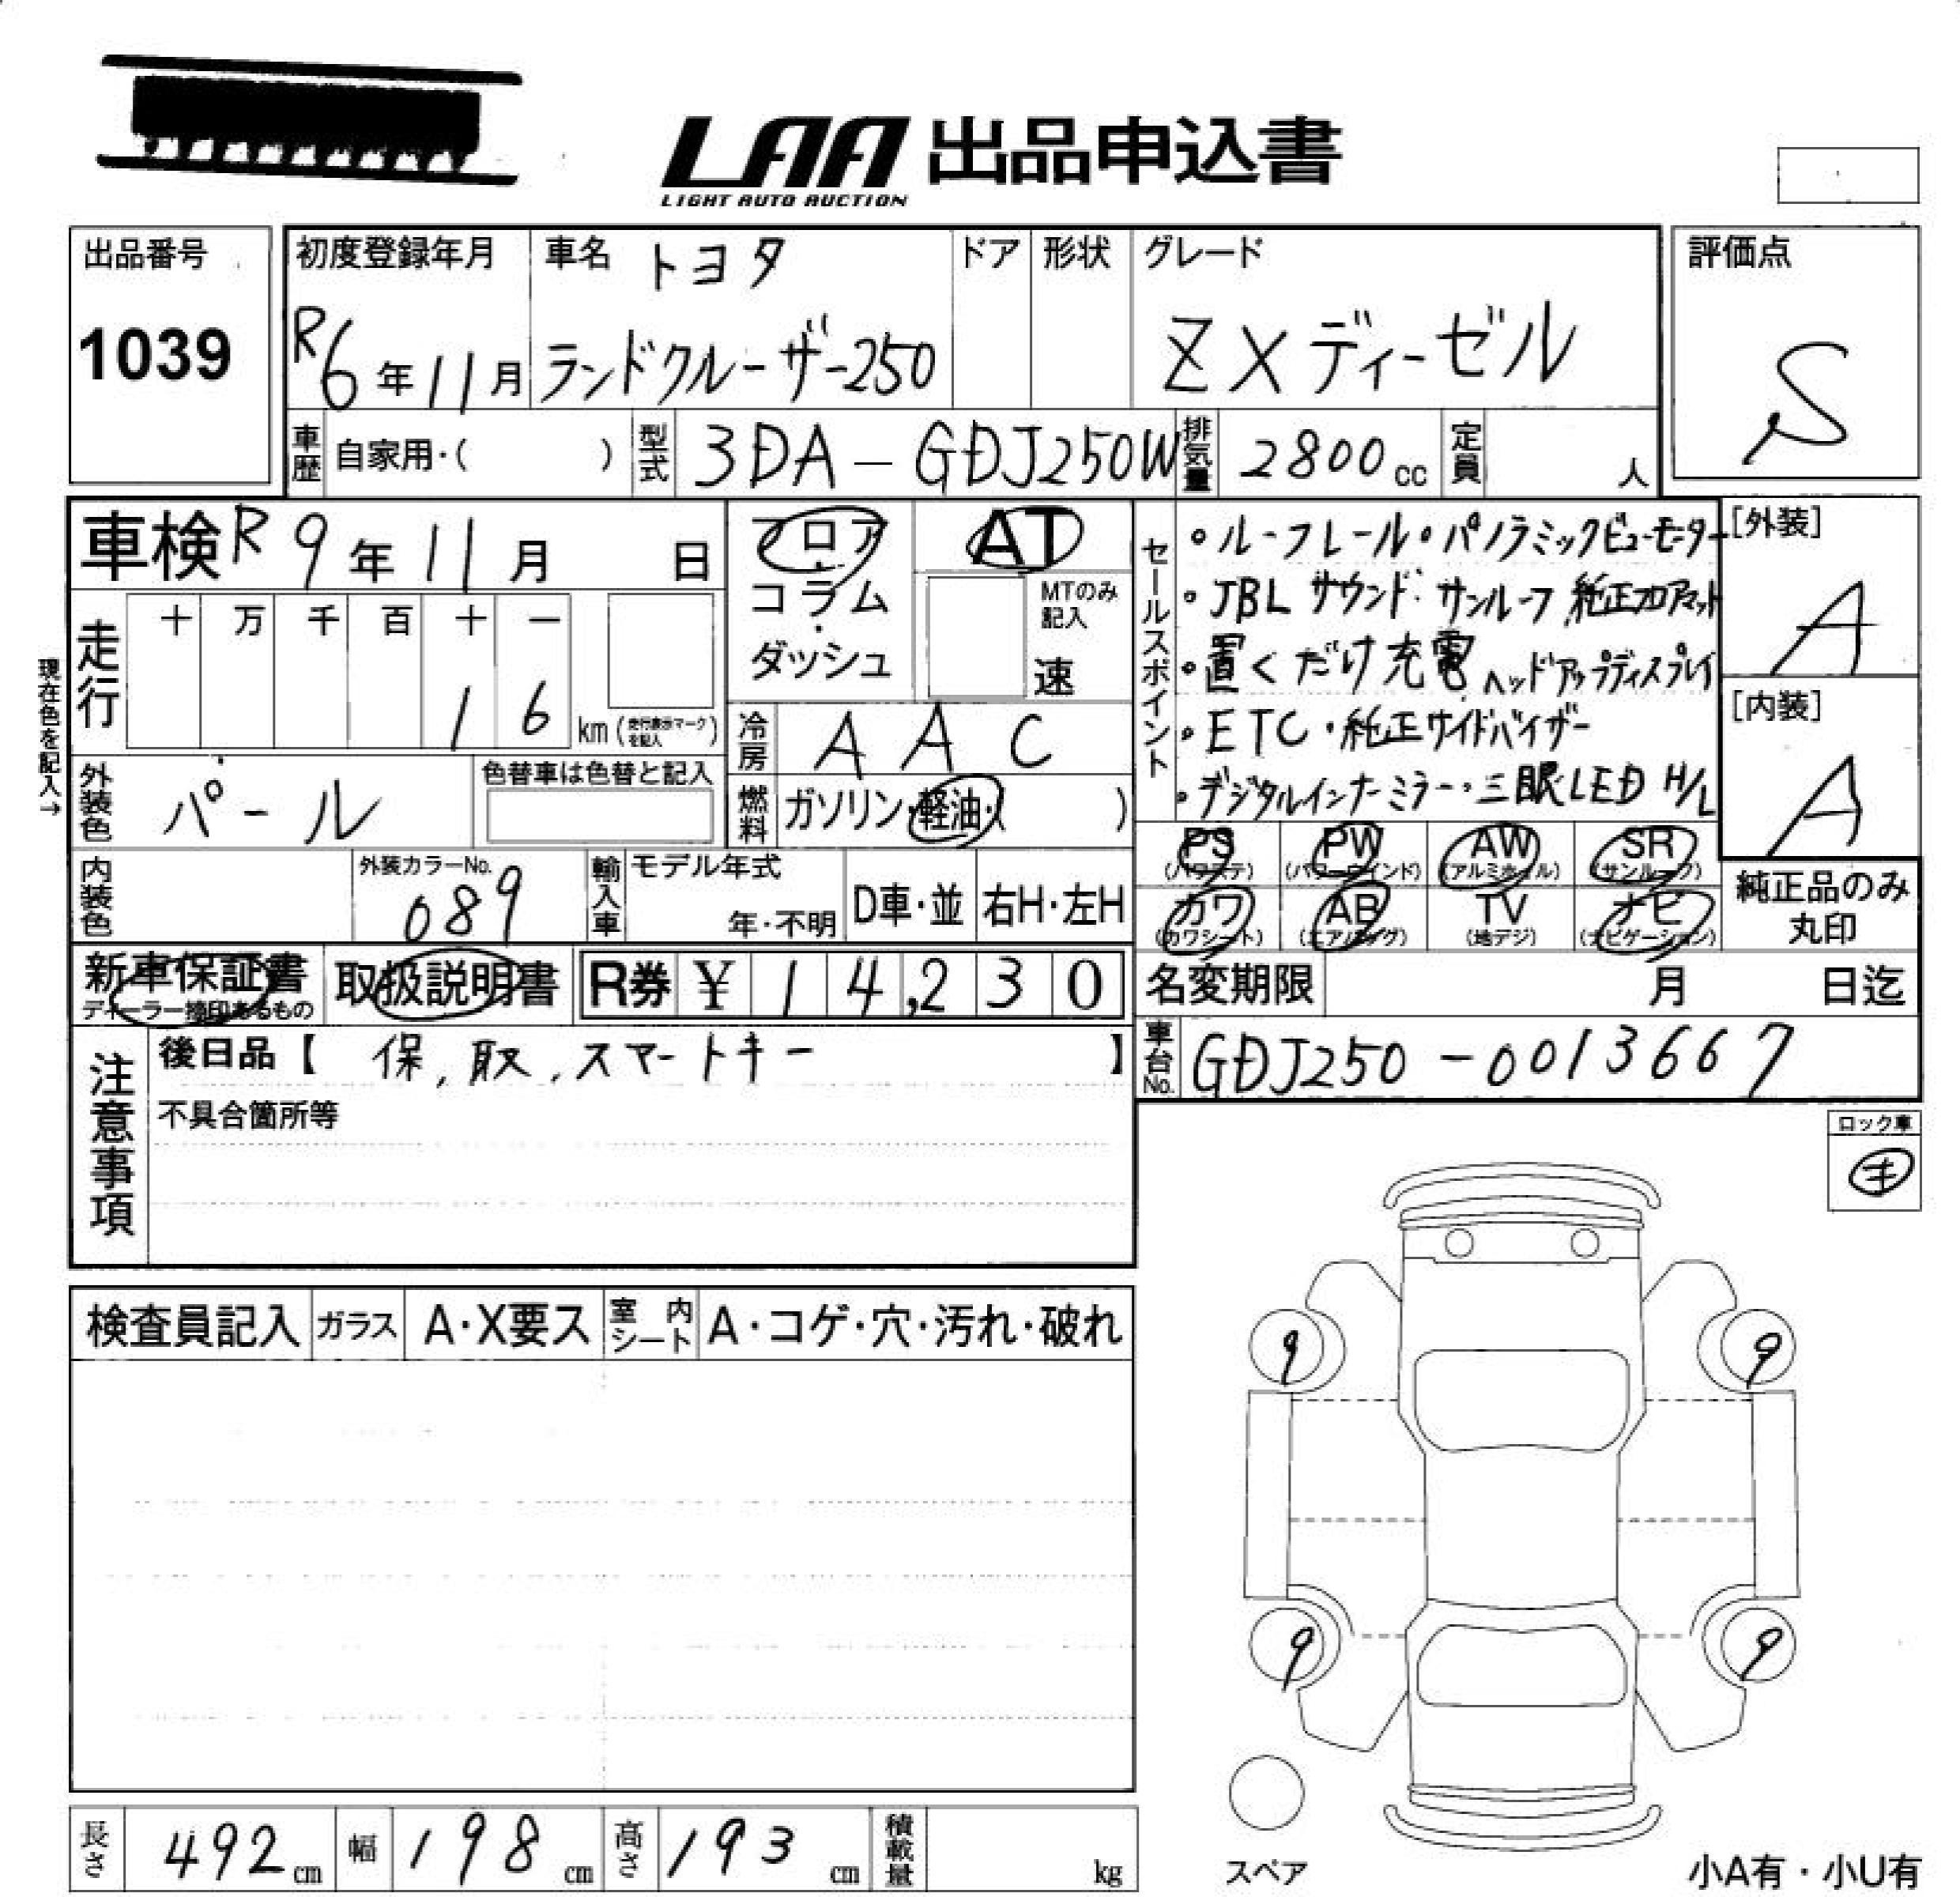 LAA 出品申込書
LIGHT AUTO AUCTION
出品番号
1039
初度登録年月
R6年11月
車名 トヨタ
ランドクルーザー250
ドア
形状
グレード
ZXディーゼル
評価点
S
車歴 自家用・( )
型式 3DA-GDJ250W
排気量 2800cc
定員 人
車検 R9年11月 日
フロア・コラム・ダッシュ
AT
MTのみ記入
速
セールスポイント
・ルーフレール・パノラミックビューモニター
・JBLサウンド・サンルーフ 純正フロアマット
・置くだけ充電 ヘッドアップディスプレイ
・ETC・純正サイドバイザー
・デジタルインナーミラー・三眼LED H/L
[外装]
A
[内装]
A
現在色を記入→
走行
十 万 千 百 十 一
16 km(走行表示マークを記入)
冷房 AAC
外装色 パール
色替車は色替と記入
燃料 ガソリン・軽油・( )
PS (パワステ)
PW (パワーウインド)
AW (アルミホイル)
SR (サンルーフ)
カワ (カワシート)
AB (エアバッグ)
TV (地デジ)
ナビ (ナビゲーション)
純正品のみ丸印
内装色
外装カラーNo. 089
輸入車
モデル年式
年・不明
D車・並
右H・左H
新車保証書
ディーラー捺印あるもの
取扱説明書
R券 ¥14,230
名変期限 月 日迄
車台No. GDJ250-0013667
注意事項
後日品【 保,取,スマートキー 】
不具合箇所等
ロック車
検査員記入
ガラス A・X要ス
室内シート A・コゲ・穴・汚れ・破れ
9
9
9
9
スペア
長さ 492cm
幅 198cm
高さ 193cm
積載量 kg
小A有・小U有